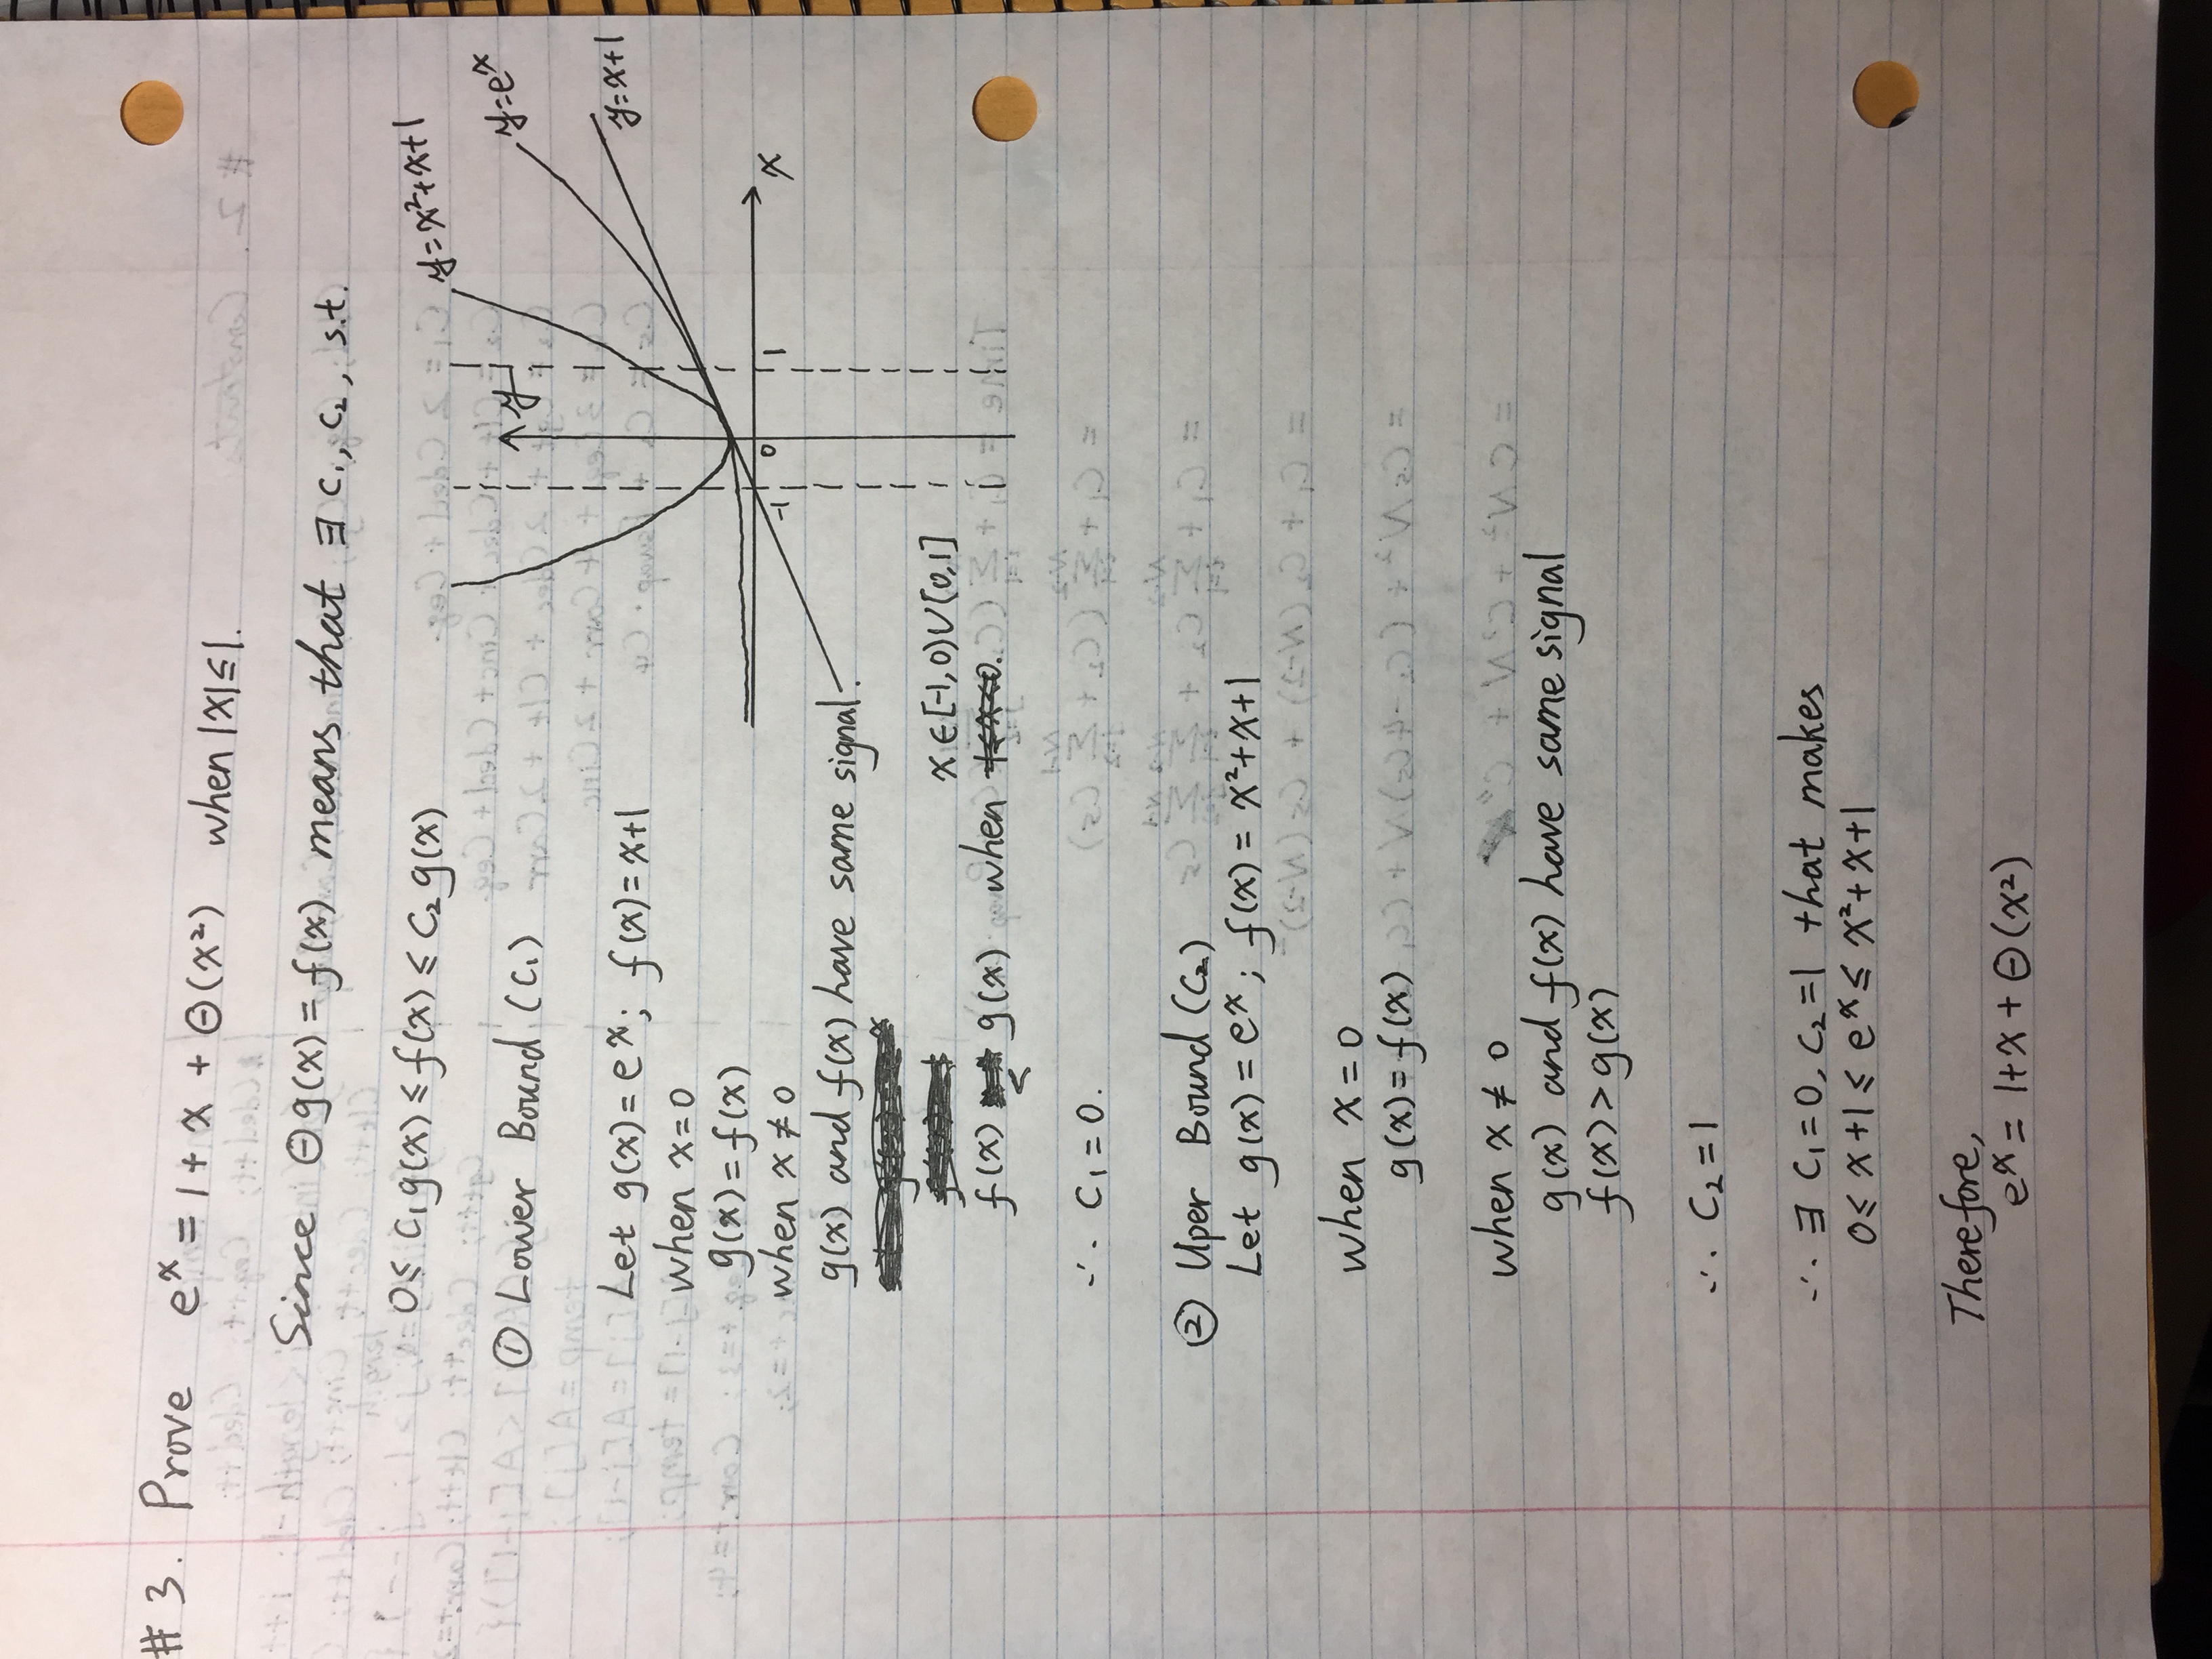 #3. Prove e^x = 1 + x + Θ(x²) when |x|≤1.
Since Θg(x) = f(x) means that ∃ C₁, C₂, s.t.
0≤ C₁g(x) ≤ f(x) ≤ C₂g(x)
y=x²+x+1
y=e^x
y=x+1
y
x
-1
0
1
① Lower Bound (C₁)
Let g(x) = e^x; f(x) = x+1
when x=0
g(x) = f(x)
when x ≠ 0
g(x) and f(x) have same signal.
x∈[-1,0)∪[0,1]
f(x) < g(x) when
∴ C₁ = 0.
② Uper Bound (C₂)
Let g(x) = e^x; f(x) = x²+x+1
when x = 0
g(x) = f(x)
when x ≠ 0
g(x) and f(x) have same signal
f(x) > g(x)
∴ C₂ = 1
∴ ∃ C₁=0, C₂=1 that makes
0≤ x+1 ≤ e^x ≤ x²+x+1
Therefore,
e^x = 1+x + Θ(x²)